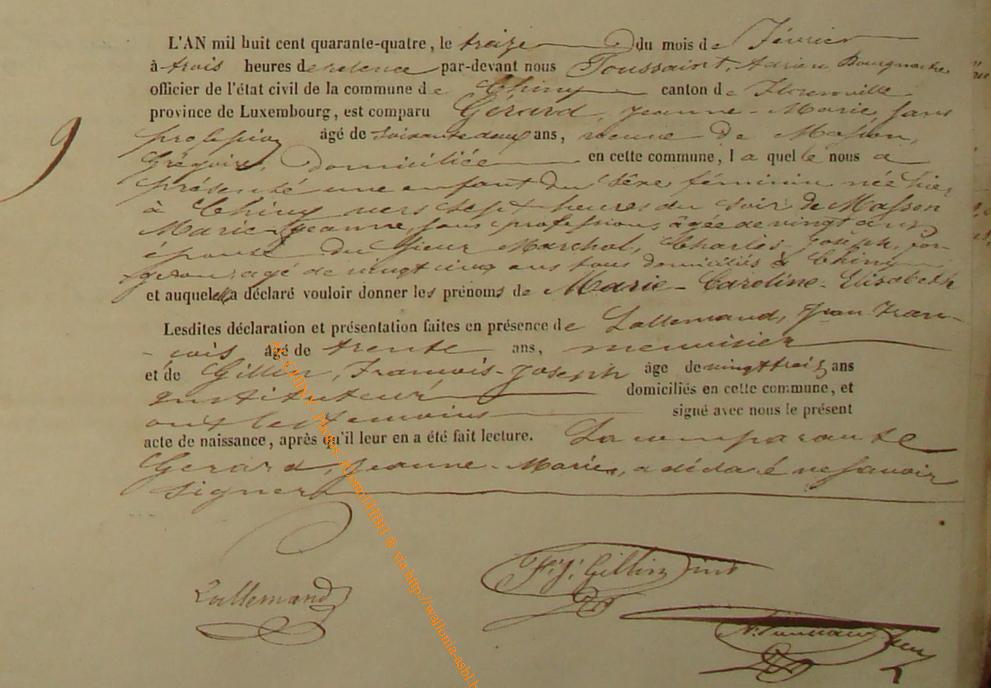 L'AN mil huit cent quarante-quatre, le treize du mois de Février
à trois heures de relevée par-devant nous Toussaint, Adrien
officier de l'état civil de la commune de Chiny canton de Florenville
province de Luxembourg, est comparu Gérard, Jeanne-Marie, sans
profession âgé de soixante deux ans, veuve de Masson,
Grégoire, domiciliée en cette commune, laquelle nous a
9
présenté une enfant du sexe féminin née hier
à Chiny vers sept heures du soir de Masson
Marie-Jeanne, sans profession, âgée de vingt ans
épouse du sieur Marchal, Charles-Joseph, for-
geron, âgé de vingt cinq ans tous domiciliés à Chiny
et auquel elle a déclaré vouloir donner les prénoms de Marie-Caroline-Elisabeth
Lesdites déclaration et présentation faites en présence de Lallemand, Jean Fran-
-cois âgé de trente ans, menuisier
et de Gillin, Francois-Joseph âge de vingt trois ans
Instituteur domiciliés en cette commune, et
ont les temoins signé avec nous le présent
acte de naissance, après qu'il leur en a été fait lecture. La comparante
Gerard, Jeanne-Marie, a déclaré ne savoir
signer
Lallemand
F. J. Gillin inst
via http://wallonia-asbl.b